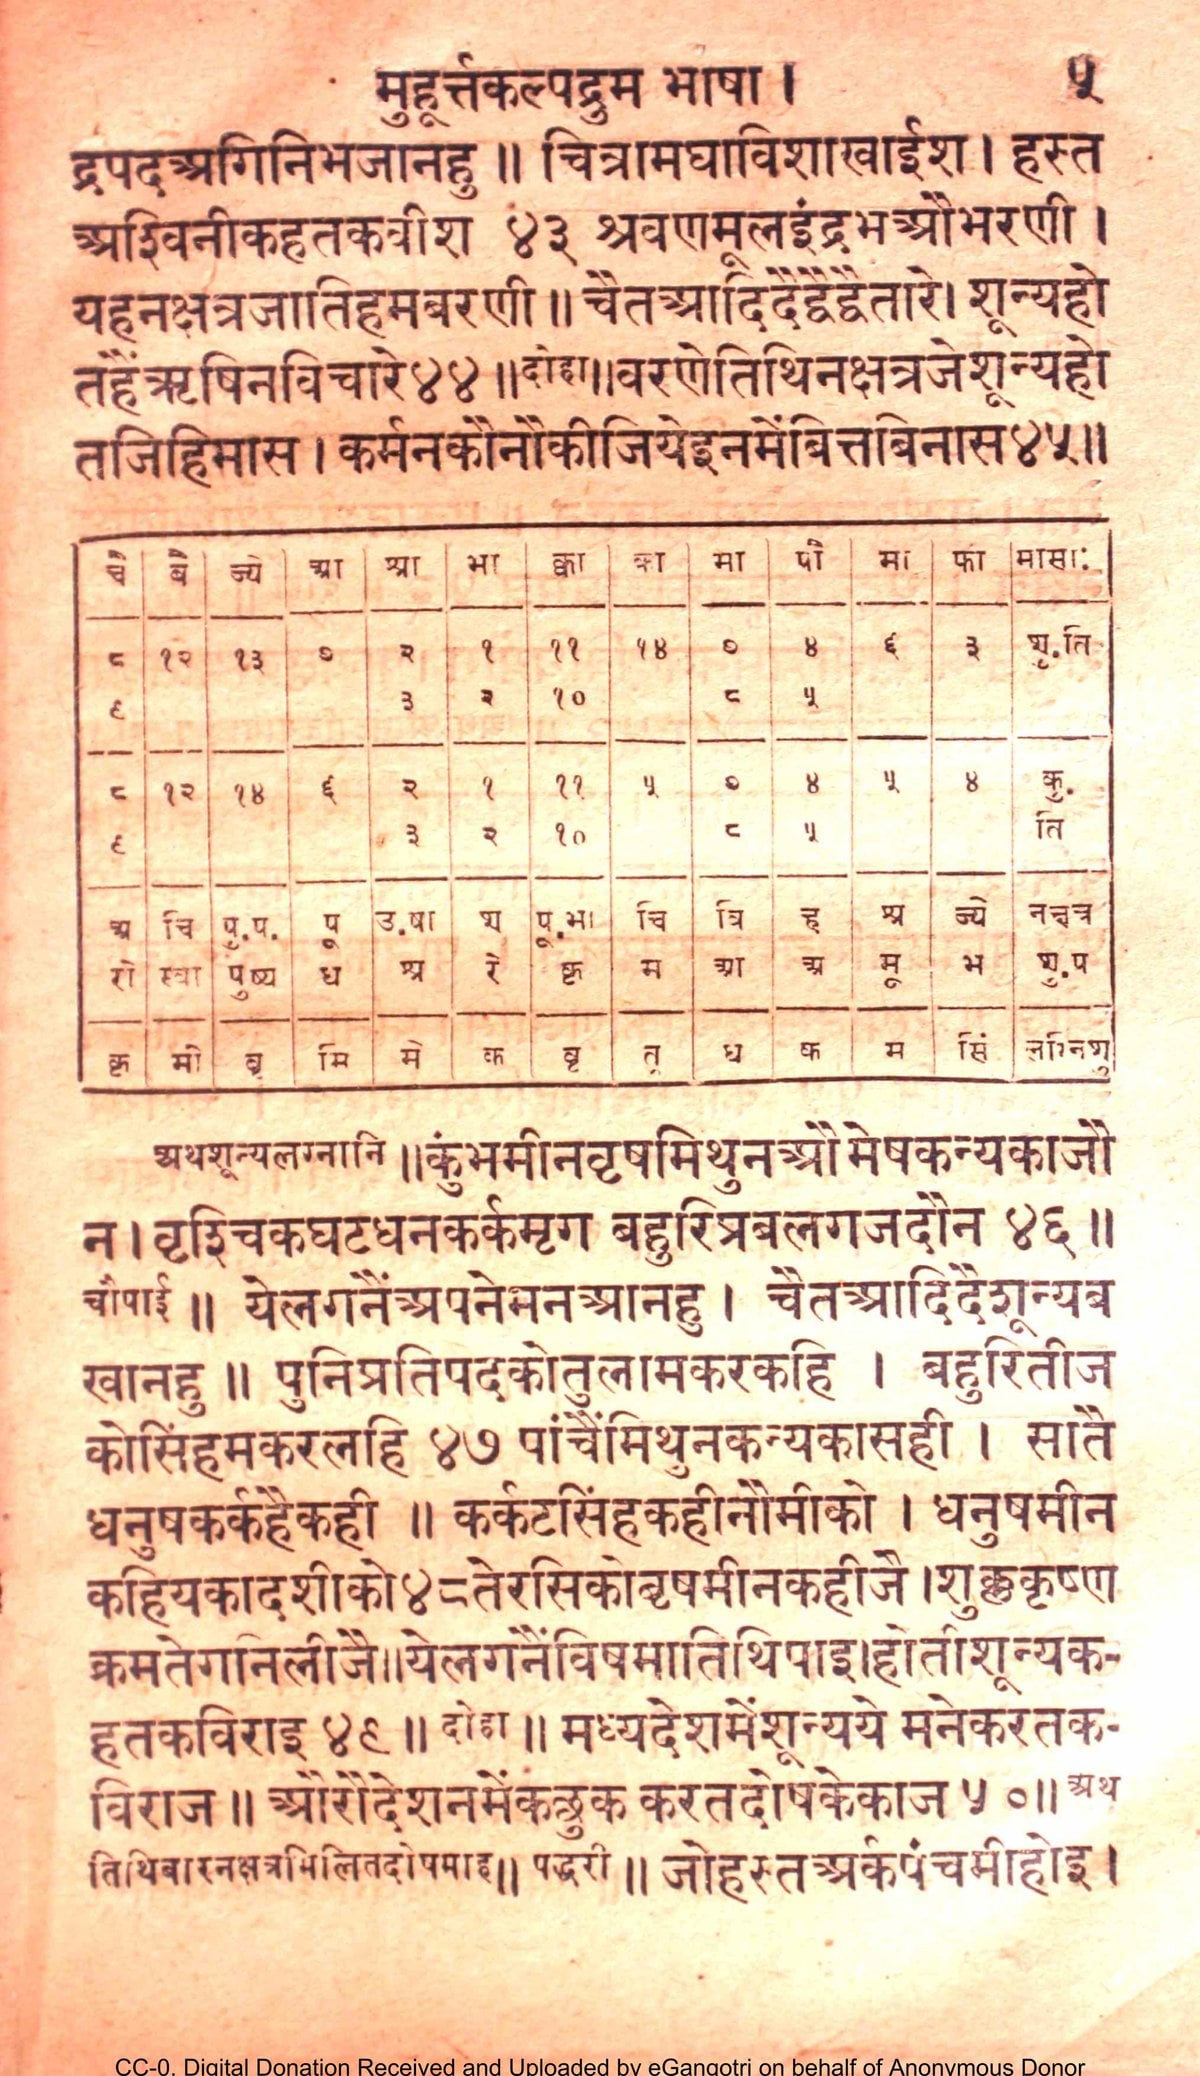 मुहूर्त्तकल्पद्रुम भाषा । ५
द्रपदअगिनिभजानहु ॥ चित्रामघाविशाखाईश । हस्त
अश्विनीकहतकवीश ४३ श्रवणमूलइंद्रभऔभरणी ।
यहनक्षत्रजातिहमबरणी ॥ चैतआदिदैद्वैद्वैतारे। शून्यहो
तहैंऋषिनविचारे४४ ॥दोहा॥वरणेतिथिनक्षत्रजेशून्यहो
तजिहिमास । कर्मनकौनौकीजियेइनमेंबित्तबिनास४५॥
चै बै ज्ये आ श्रा भा क्वा का मा पौ मा फा मासाः
८ १२ १३ ० २ १ ११ १४ ० ४ ६ ३ शु.ति
९ ३ २ १० ८ ५
८ १२ १४ ६ २ १ ११ ५ ० ४ ५ ४ कृ.
९ ३ २ १० ८ ५ ति
अ चि पु.प. पू उ.षा श पू.भा चि त्रि ह श्र ज्ये नक्षत्र
रो स्वा पुष्य ध श्र रे कृ म आ अ मू भ शु.प
कृ मी बृ मि मे क वृ तृ ध क म सिं लग्निशु
अथशून्यलग्नानि ॥कुंभमीनवृषमिथुनऔमेषकन्यकाजौ
न । वृश्चिकघटधनकर्कमृग बहुरिप्रबलगजदौन ४६ ॥
चौपाई ॥ येलगनैंअपनेमनआनहु । चैतआदिदैशून्यब
खानहु ॥ पुनिप्रतिपदकोतुलामकरकहि । बहुरितीज
कोसिंहमकरलहि ४७ पांचैंमिथुनकन्यकासही । सातै
धनुषकर्कहैकही ॥ कर्कटसिंहकहीनौमीको । धनुषमीन
कहियकादशीको४८तेरसिकोवृषमीनकहीजै ।शुक्लकृष्ण
क्रमतेगनिलीजै॥येलगनैंविषमातिथिपाइ।होतीशून्यक-
हतकविराइ ४९ ॥ दोहा ॥ मध्यदेशमेंशून्यये मनेकरतक-
विराज ॥ औरौदेशनमेंकछुक करतदोषकेकाज ५०॥ अथ
तिथिबारनक्षत्रमिलितदोषमाह॥ पद्धरी ॥ जोहस्तअर्कपंचमीहोइ ।
CC-0. Digital Donation Received and Uploaded by eGangotri on behalf of Anonymous Donor